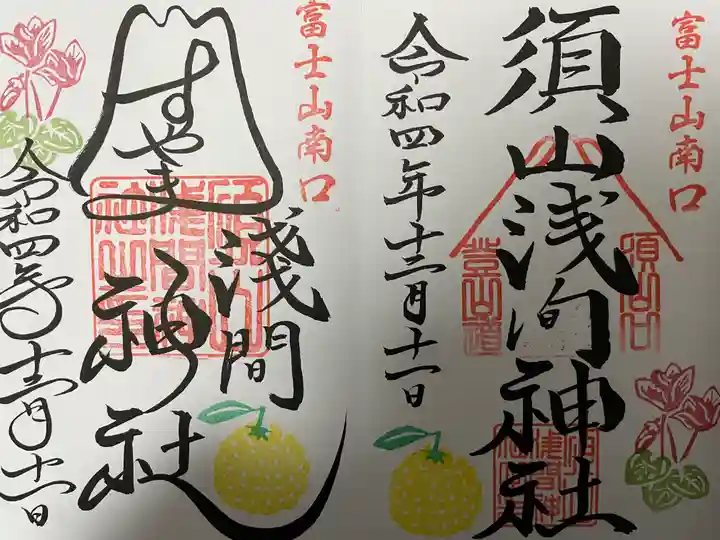 富士山南口
須山浅间神社
須山口
登山道
令和四年十二月十一日
富士山南口
すやま
淺間
神社
令和四年十二月十一日